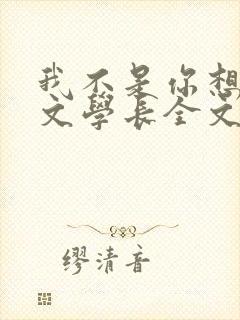 我不是你想
文學長全文
缪清音